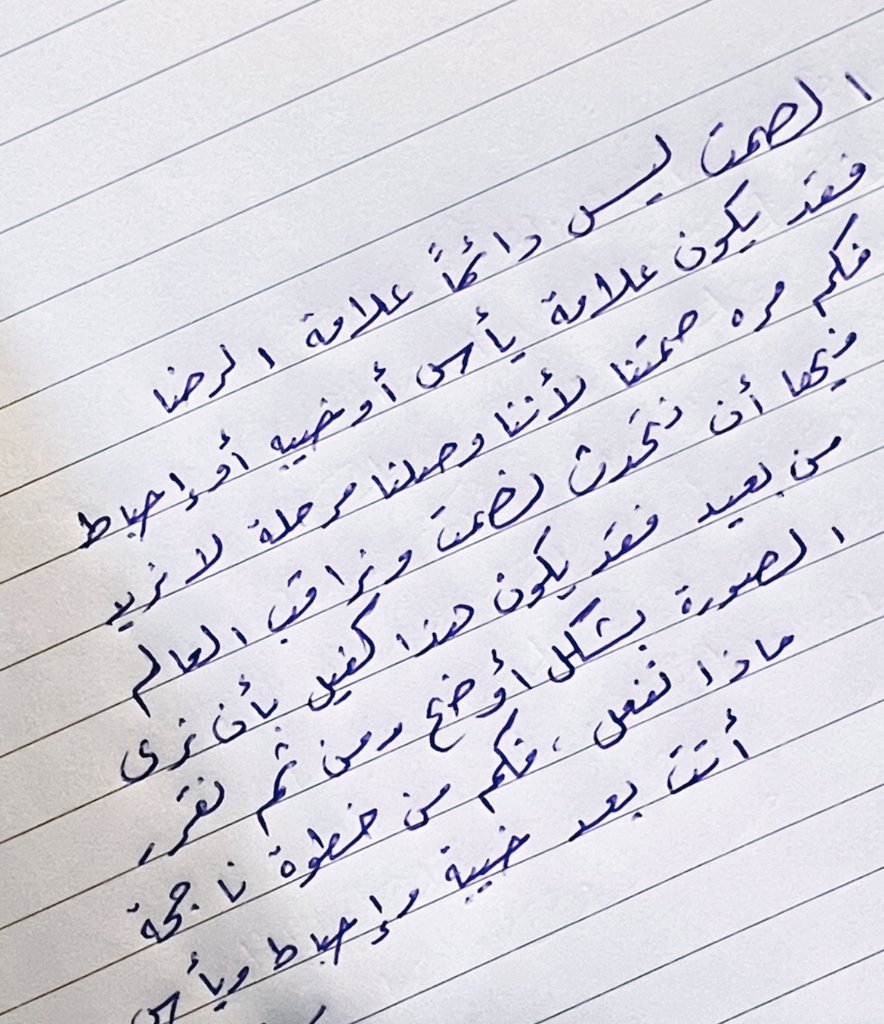 الصمت ليس دائماً علامة الرضا
فقد يكون علامة يأس أو خيبه أو إحباط
فكم مره صمتنا لأننا وصلنا مرحلة لا نريد
فيها أن نتحدث لنصمت ونراقب العالم
من بعيد فقد يكون هذا كفيل بأن نرى
الصورة بشكل أوضح ومن ثم نقرر
ماذا نفعل ، فكم من خطوة ناجحة
أتت بعد خيبة وإحباط ويأس